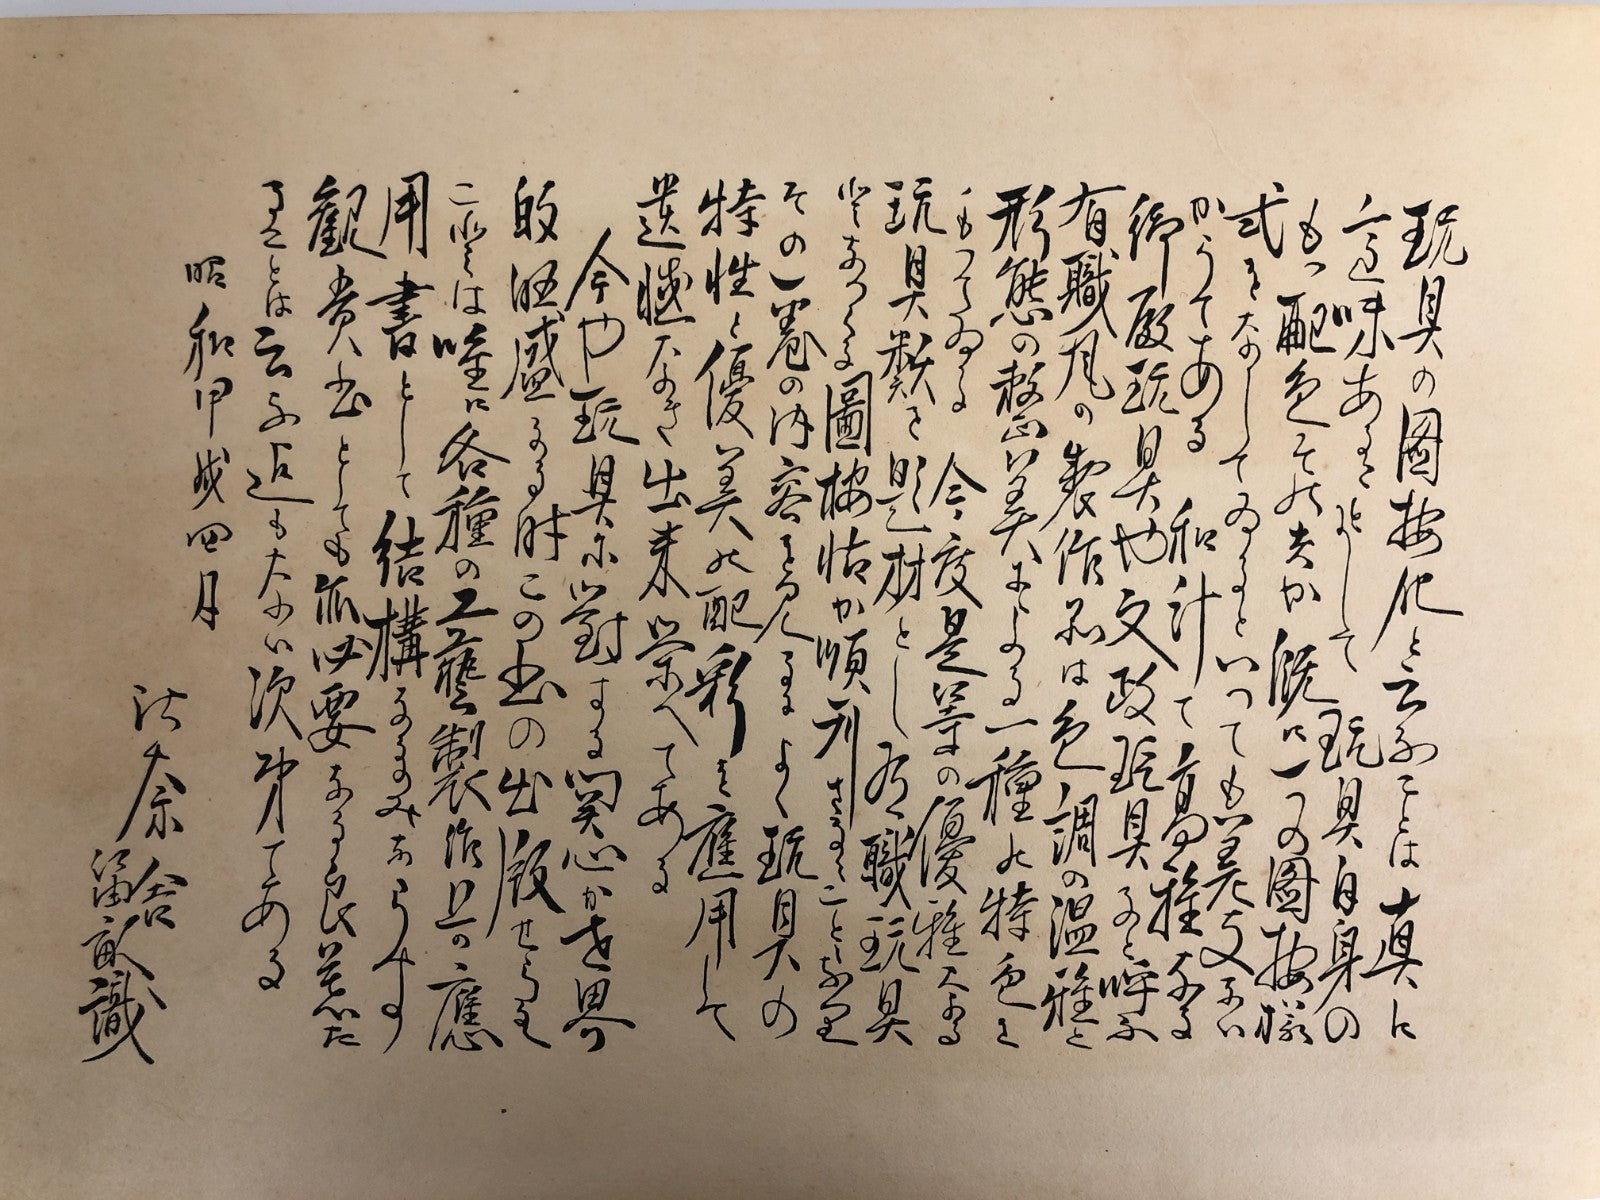 玩具の図按化と云ふことは真に
意味あるものにして玩具自身の
もつ配色その夫か既に一つの図按様
式をなしてゐるといつても差支ない
からである 和計て高雅なる
御殿玩具や文政玩具なと呼ふ
有職風の製作品は色調の温雅と
形態の整美による一種の特色を
もつてゐる 今度是等の優雅なる
玩具類を題材とし有職玩具
と云へる図按帖か順刊さるることとなり
その一巻の内容を見るによく玩具の
特性と優美の配彩を応用して
遺憾なき出来栄へてある
今や玩具に対する関心か世界
的旺盛なる時この書の出版せらる
これは唯に各種の工芸製作上の応
用書として結構なるのみならす
観賞書としても亦必要なる良著た
ることは云ふ迄もない次第てある
昭和甲戌四月